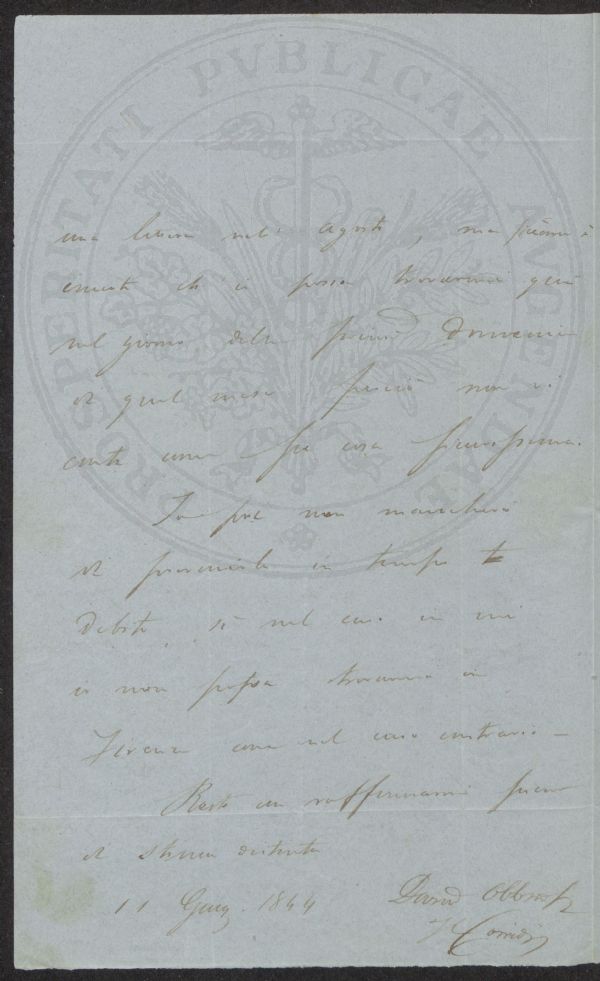 PROSPERITATI PVBLICAE AVGENDAE
una lettera nell' Agosto, ma
che io possa trovarmi qui
nel giorno della prima Domenica
di quel mese perciò non vi
conti come fra cosa sicurissima.
Io poi non mancherò
di prevenirla in tempo
debito, sì nel caso in cui
io non possa trovarmi in
Firenze come nel caso contrario –
Resto con raffermarmi pieno
di stima distinta
11 Giug. 1844
Corridi